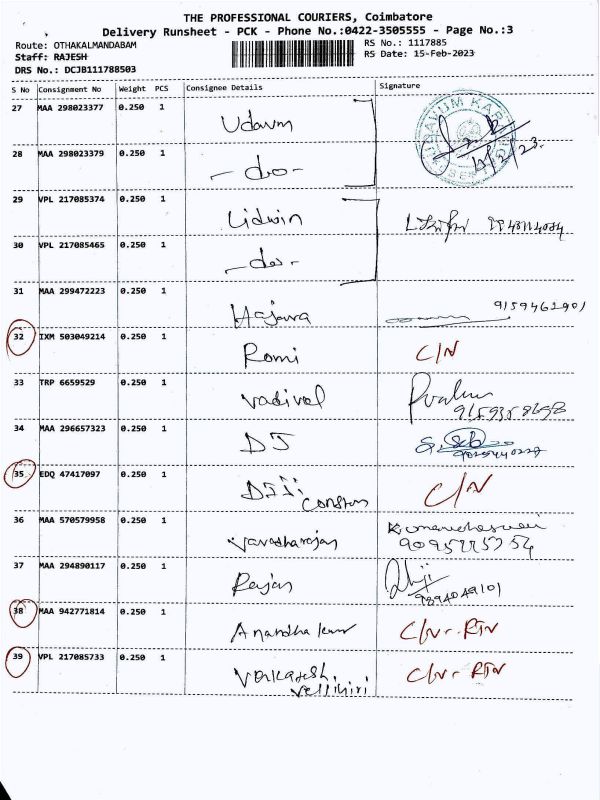 THE PROFESSIONAL COURIERS, Coimbatore
Delivery Runsheet - PCK - Phone No.:0422-3505555 - Page No.:3
Route: OTHAKALMANDABAM RS No.: 1117885
Staff: RAJESH RS Date: 15-Feb-2023
DRS No.: DCJB111788503
S No Consignment No Weight PCS Consignee Details Signature
27 MAA 298023377 0.250 1 Udavum
28 MAA 298023379 0.250 1 -do-
29 VPL 217085374 0.250 1 Lidwin
30 VPL 217085465 0.250 1 -do-
31 MAA 299472223 0.250 1 Hajara 9159461901
32 IXM 503049214 0.250 1 Romi C/N
33 TRP 6659529 0.250 1 Vadivel
34 MAA 296657323 0.250 1 DJ
35 EDQ 47417097 0.250 1 C/N
36 MAA 570579958 0.250 1 Varadharajan
37 MAA 294890117 0.250 1 Rajan 9894049101
38 MAA 942771814 0.250 1 Anandha kumar C/N - RTN
39 VPL 217085733 0.250 1 Venkatesh C/N - RTN
Vellingiri